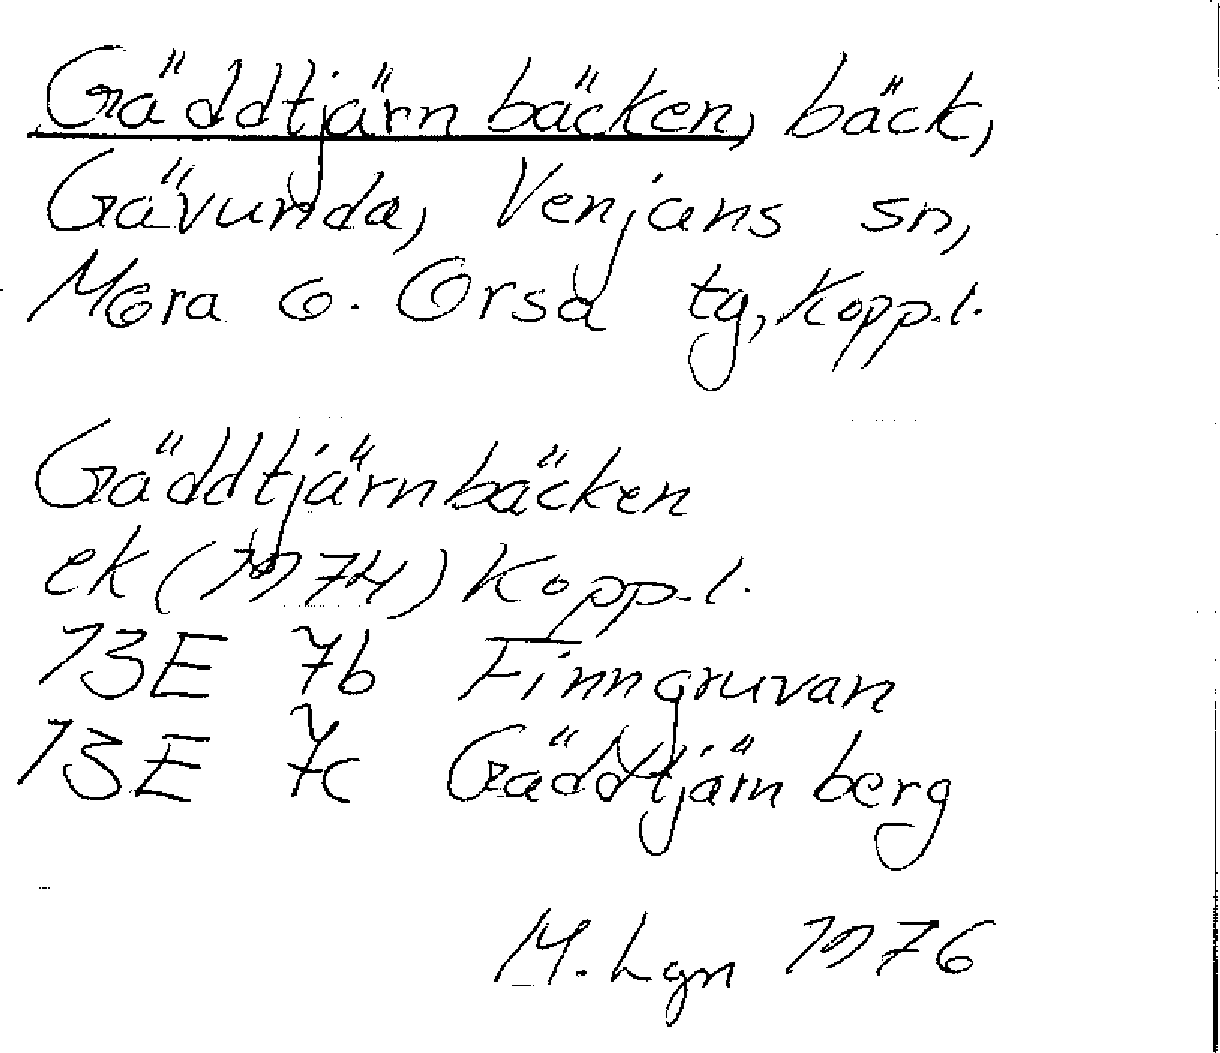 Gäddtjärnbäcken, bäck,
Gävunda, Venjans sn,
Mora o. Orsa tg, Kopp.l.
Gäddtjärnbäcken
ek (1974) Kopp.l.
13E 7b Finngruvan
13E 7c Gäddtjärnberg
M. Lgn 1976